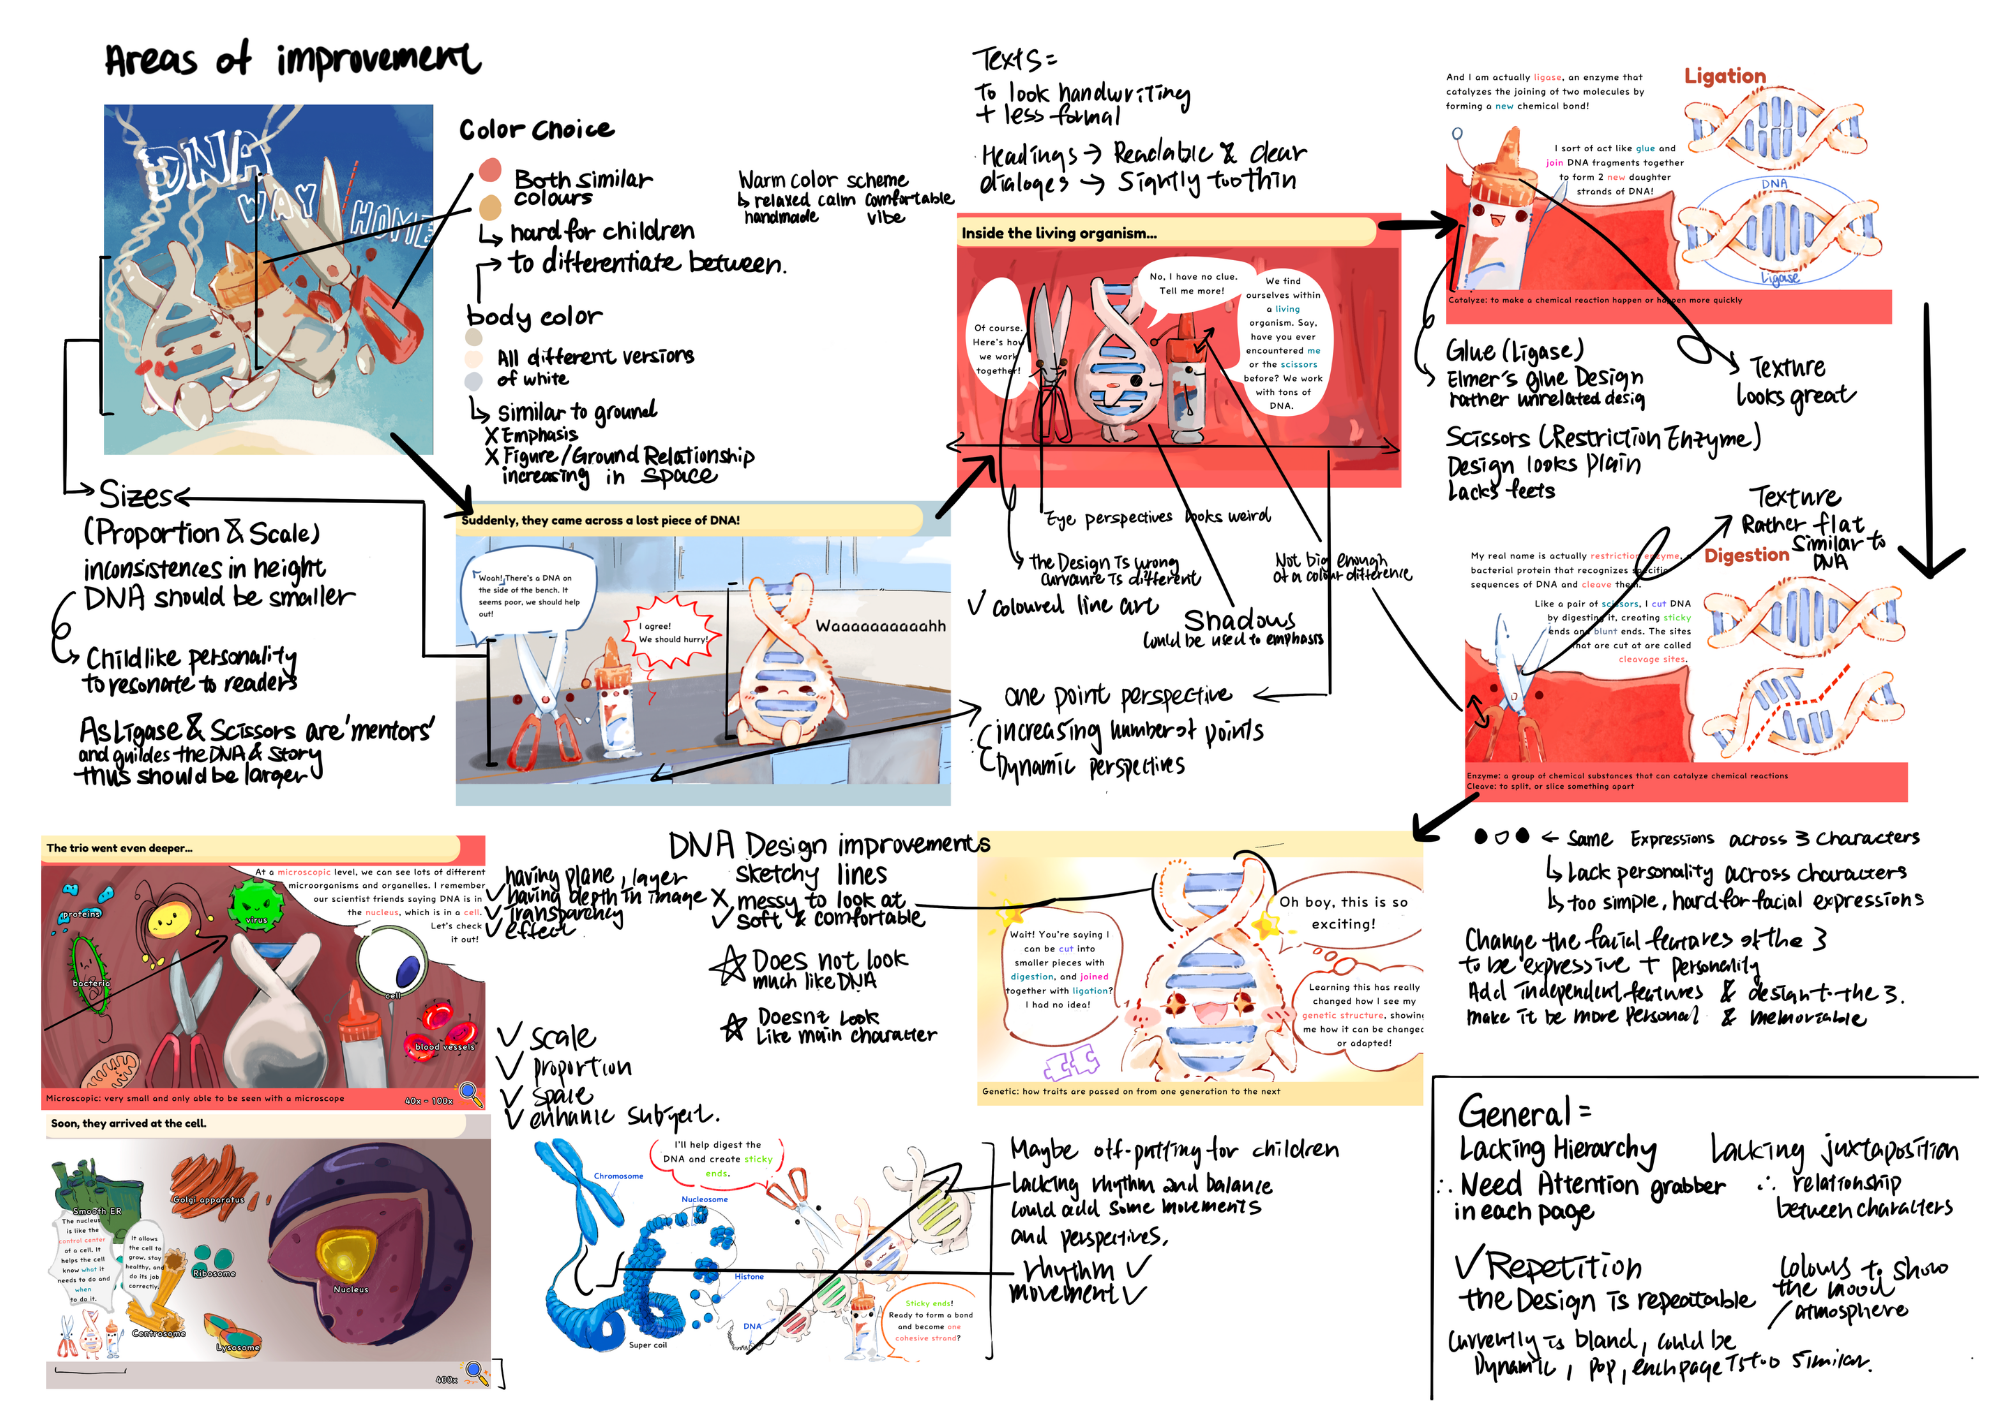 Areas of improvement
DNA
WAY
HOME
Color choice
Both similar
colours
hard for children
to differentiate between.
body color
All different versions
of white
Similar to ground
X Emphasis
X Figure/Ground Relationship
increasing in space
Warm color scheme
relaxed calm comfortable
handmade vibe
Sizes
(Proportion & Scale)
inconsistences in height
DNA should be smaller
Childlike personality
to resonate to readers
As Ligase & Scissors are 'mentors'
and guildes the DNA & Story
thus should be larger
Suddenly, they came across a lost piece of DNA!
Woah! There's a DNA on
the side of the bench. It
seems poor, we should help
out!
I agree!
We should hurry!
Waaaaaaaaaahh
Texts =
To look handwriting
+ less formal
Headings → Readable & clear
dialoges → Slightly too thin
Inside the living organism...
Of course.
Here's how
we work
together!
No, I have no clue.
Tell me more!
We find
ourselves within
a living
organism. Say,
have you ever
encountered me
or the scissors
before? We work
with tons of
DNA.
Eye perspectives looks weird
the Design is wrong
curvance is different
√ coloured line art
Shadows
could be used to emphasis
Not big enough
of a colour difference
one point perspective
increasing number of points
Dynamic perspectives
And I am actually ligase, an enzyme that
catalyzes the joining of two molecules by
forming a new chemical bond!
I sort of act like glue and
join DNA fragments together
to form 2 new daughter
strands of DNA!
Ligation
DNA
Ligase
Catalyze: to make a chemical reaction happen or happen more quickly
Glue (Ligase)
Elmer's glue Design
rather unrelated desig
Texture
looks great
Scissors (Restriction Enzyme)
Design looks plain
Lacks feets
Texture
Rather flat
Similar to
DNA
My real name is actually restriction enzyme, a
bacterial protein that recognizes specific
sequences of DNA and cleave them.
Like a pair of scissors, I cut DNA
by digesting it, creating sticky
ends and blunt ends. The sites
that are cut at are called
cleavage sites.
Digestion
Enzyme: a group of chemical substances that can catalyze chemical reactions
Cleave: to split, or slice something apart
← Same Expressions across 3 characters
Lack personality across characters
too simple, hard for facial expressions
Change the facial features of the 3
to be expressive + personality
Add independent features & design to the 3.
make it be more personal & memoriable
The trio went even deeper...
At a microscopic level, we can see lots of different
microorganisms and organelles. I remember
our scientist friends saying DNA is in
the nucleus, which is in a cell.
Let's check
it out!
proteins
virus
bacteria
cell
blood vessels
Microscopic: very small and only able to be seen with a microscope
40x - 100x
having plane, layer
√ having depth in image
√ Transparency
√ effect
DNA Design improvements
Sketchy lines
X messy to look at
√ Soft & comfortable
Does not look
much like DNA
Doesnt Look
Like main character
Wait! You're saying I
can be cut into
smaller pieces with
digestion, and joined
together with ligation?
I had no idea!
Oh boy, this is so
exciting!
Learning this has really
changed how I see my
genetic structure, showing
me how it can be changed
or adapted!
Genetic: how traits are passed on from one generation to the next
√ scale
√ proportion
√ space
√ enhance subject.
Soon, they arrived at the cell.
Smooth ER
Golgi apparatus
The nucleus
is like the
control center
of a cell. It
helps the cell
know what it
needs to do and
when
to do it.
It allows
the cell to
grow, stay
healthy, and
do its job
correctly.
Ribosome
Centrosome
Lysosome
Nucleus
400x
I'll help digest the
DNA and create sticky
ends.
Chromosome
Nucleosome
Histone
DNA
Super coil
Sticky ends!
Ready to form a bond
and become one
cohesive strand?
Maybe off-putting for children
Lacking rhythm and balance
could add some movements
and perspectives.
rhythm √
movement √
General =
Lacking Hierarchy
∴ Need Attention grabber
in each page
Lacking juxtaposition
∴ relationship
between characters
√ Repetition
the Design is repeatable
Colours to show
the mood
/ atmosphere
Currently is bland, could be
Dynamic, pop, each page is too similar.